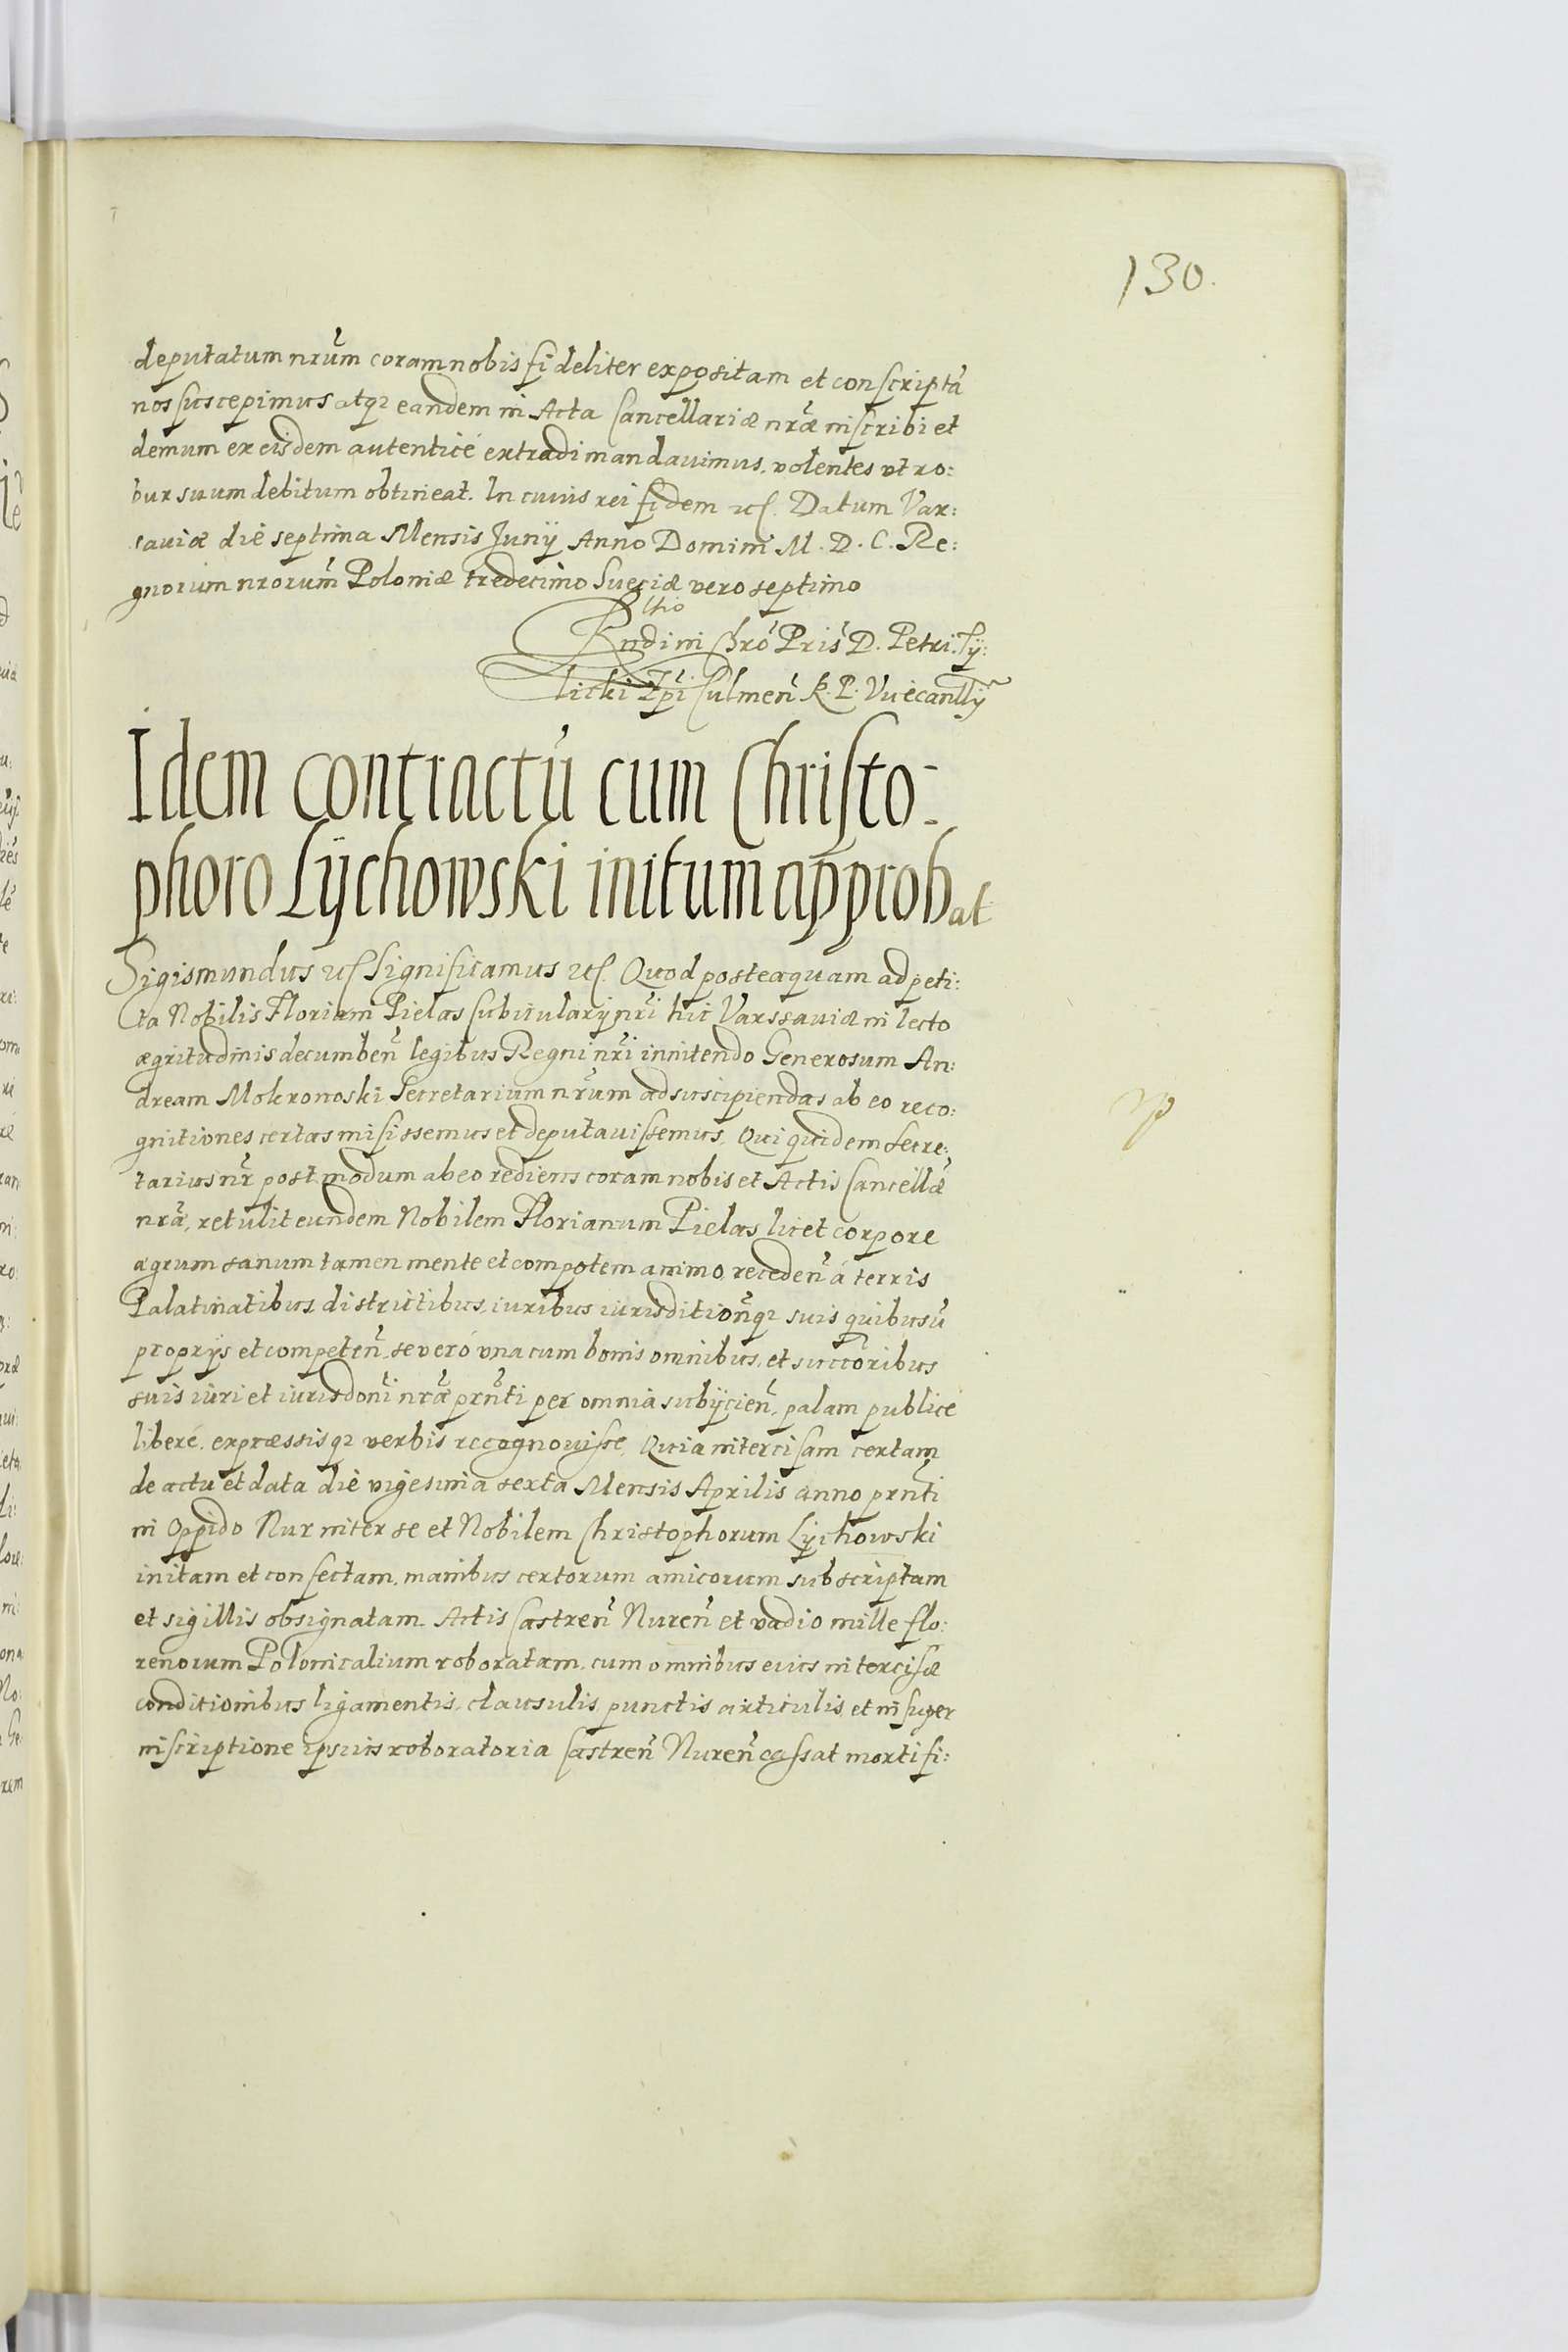 130.
deputatum nrum coram nobis fideliter expositam et conscriptã
nos suscepimus atq₃ eandem in Acta Cancellariæ nræ inscribi et
demum ex eisdem autenticé extradi mandauimus, volentes vt ro:
bur suum debitum obtineat. In cuius rei fidem etc. Datum Var:
sauiæ die septima Mensis Junij Anno Domini M. D. C. Re:
gnorum nrorum Poloniæ tredecimo Sueciæ vero septimo
Rltio
Rndi in Chro Pris D. Petri Ty:
licki Epi Culmen R. P. Vicecanllij
Idem contractũ cum Christo-
phoro Lÿchowski initum approbat
Sigismundus etc. Significamus etc. Quod posteaquam ad peti:
ta Nobilis Floriani Pielas Cubicularij nri hic Varssauiæ in lecto
ægritudinis decumben̄ legibus Regni nri innitendo Generosum An:
dream Mokronoski Secretarium nrum ad suscipiendas ab eo reco:
gnitiones certas misissemus et deputauissemus, Qui quidem Secre:
tarius nr post modum ab eo rediens coram nobis et Actis Cancellæ
nræ, retulit eundem Nobilem Florianum Pielas licet corpore
ægrum sanum tamen mente et compotem animo, receden̄ á terris
Palatinatibus, districtibus, iuribus iurisditionq₃ suis quibusũ
proprijs et competen̄, se veró vna cum bonis omnibus, et succoribus
suis iuri et iurisdoni nræ prnti per omnia subijcien̄, palam publicé
liberé, expræssisq₃ verbis recognouisse, Quia intercisam certam
de actu et data die vigesima sexta Mensis Aprilis anno prnti
in Oppido Nur inter se et Nobilem Christophorum Lÿchowski
initam et confectam, manibus certorum amicorum subscriptam
et sigillis obsignatam. Actis Castren̄ Nuren̄ et vadio mille flo:
renorum Polonicalium roboratam, cum omnibus eius intercisæ
conditionibus ligamentis, clausulis, punctis articulis, et in super
inscriptione ipsius roboratoria Castren̄ Nuren̄ cassat mortifi: